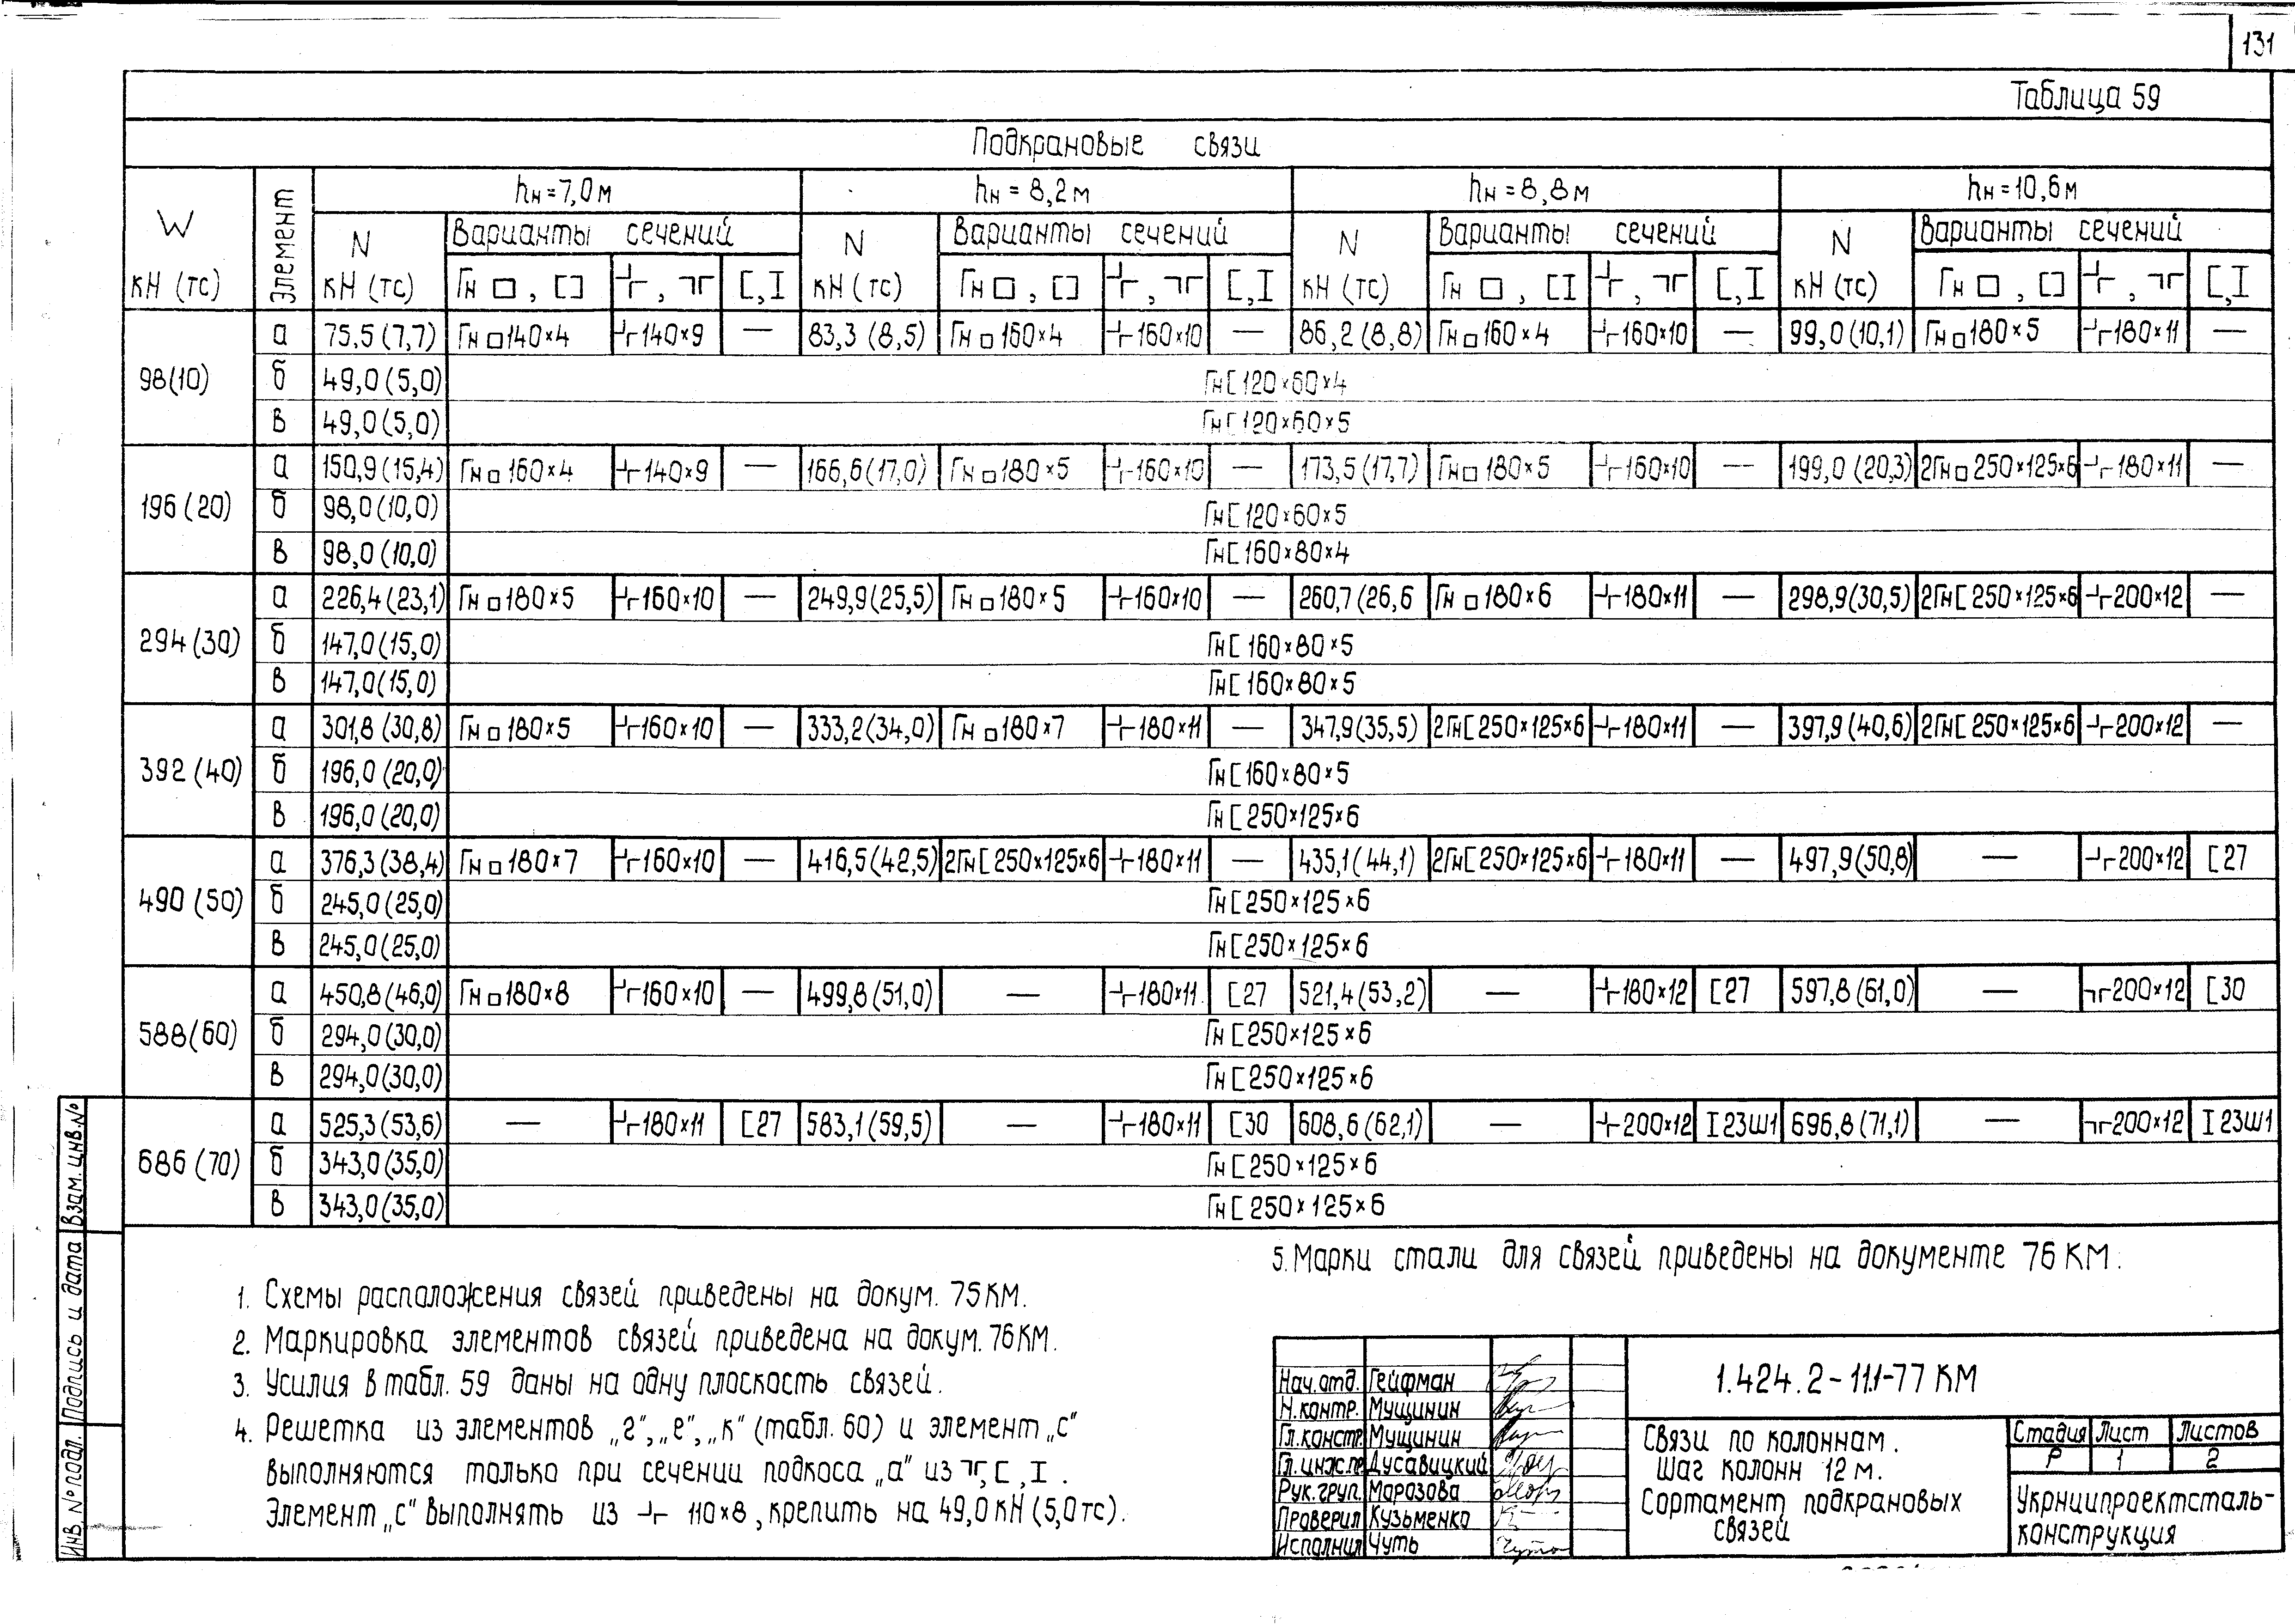 131
Таблица 59
Подкрановые связи
W кН (тс) Элемент hн=7,0м hн = 8,2м hн=8,8м hн=10,6м
N кН (тс) Варианты сечений N кН (тс) Варианты сечений N кН (тс) Варианты сечений N кН (тс) Варианты сечений
Гн □, [] ┘┌, ┐┌ [, I Гн □, [] ┘┌, ┐┌ [, I Гн □, [] ┘┌, ┐┌ [, I Гн □, [] ┘┌, ┐┌ [, I
98(10) а 75,5 (7,7) Гн □ 140×4 ┘┌ 140×9 — 83,3 (8,5) Гн □ 160×4 ┘┌ 160×10 — 86,2 (8,8) Гн □ 160×4 ┘┌ 160×10 — 99,0 (10,1) Гн □ 180×5 ┘┌ 180×11 —
б 49,0 (5,0) Гн[ 120×60×4
в 49,0 (5,0) Гн[ 120×60×5
196 (20) а 150,9 (15,4) Гн □ 160×4 ┘┌ 140×9 — 166,6 (17,0) Гн □ 180×5 ┘┌ 160×10 — 173,5 (17,7) Гн □ 180×5 ┘┌ 160×10 — 199,0 (20,3) 2Гн □ 250×125×6 ┘┌ 180×11 —
б 98,0 (10,0) Гн[ 120×60×5
в 98,0 (10,0) Гн[ 160×80×4
294 (30) а 226,4 (23,1) Гн □ 180×5 ┘┌ 160×10 — 249,9 (25,5) Гн □ 180×5 ┘┌ 160×10 — 260,7 (26,6 Гн □ 180×6 ┘┌ 180×11 — 298,9 (30,5) 2Гн[ 250×125×6 ┘┌ 200×12 —
б 147,0 (15,0) Гн[ 160×80×5
в 147,0 (15,0) Гн[ 160×80×5
392 (40) а 301,8 (30,8) Гн □ 180×5 ┘┌ 160×10 — 333,2 (34,0) Гн □ 180×7 ┘┌ 180×11 — 347,9 (35,5) 2Гн[ 250×125×6 ┘┌ 180×11 — 397,9 (40,6) 2Гн[ 250×125×6 ┘┌ 200×12 —
б 196,0 (20,0) Гн[ 160×80×5
в 196,0 (20,0) Гн[ 250×125×6
490 (50) а 376,3 (38,4) Гн □ 180×7 ┘┌ 160×10 — 416,5 (42,5) 2Гн[ 250×125×6 ┘┌ 180×11 — 435,1 (44,1) 2Гн[ 250×125×6 ┘┌ 180×11 — 497,9 (50,8) — ┘┌ 200×12 [27
б 245,0 (25,0) Гн[ 250×125×6
в 245,0 (25,0) Гн[ 250×125×6
588 (60) а 450,8 (46,0) Гн □ 180×8 ┘┌ 160×10 — 499,8 (51,0) — ┘┌ 180×11 [27 521,4 (53,2) — ┘┌ 180×12 [27 597,8 (61,0) — ┐┌ 200×12 [30
б 294,0 (30,0) Гн[ 250×125×6
в 294,0 (30,0) Гн[ 250×125×6
686 (70) а 525,3 (53,6) — ┘┌ 180×11 [27 583,1 (59,5) — ┘┌ 180×11 [30 608,6 (62,1) — ┘┌ 200×12 I 23Ш1 696,8 (71,1) — ┐┌ 200×12 I 23Ш1
б 343,0 (35,0) Гн[ 250×125×6
в 343,0 (35,0) Гн[ 250×125×6
1. Схемы расположения связей приведены на докум. 75КМ.
2. Маркировка элементов связей приведена на докум. 76КМ.
3. Усилия в табл. 59 даны на одну плоскость связей.
4. Решетка из элементов „г", „е", „к" (табл. 60) и элемент „с"
выполняются только при сечении подкоса „а" из ┐┌, [, I.
Элемент „с" выполнять из ┘┌ 110×8, крепить на 49,0 кН (5,0 тс).
5. Марки стали для связей приведены на документе 76 КМ.
Инв. № подл. Подпись и дата Взам. инв. №
Нач. отд. Гейфман
Н. контр. Мущинин
Гл. констр. Мущинин
Гл. инж. пр. Дусавицкий
Рук. груп. Морозова
Проверил Кузьменко
Исполнил Чуть
1.424.2-11.1-77 КМ
Связи по колоннам.
Шаг колонн 12 м.
Сортамент подкрановых
связей
Стадия Лист Листов
Р 1 2
Укрниипроектсталь-
конструкция